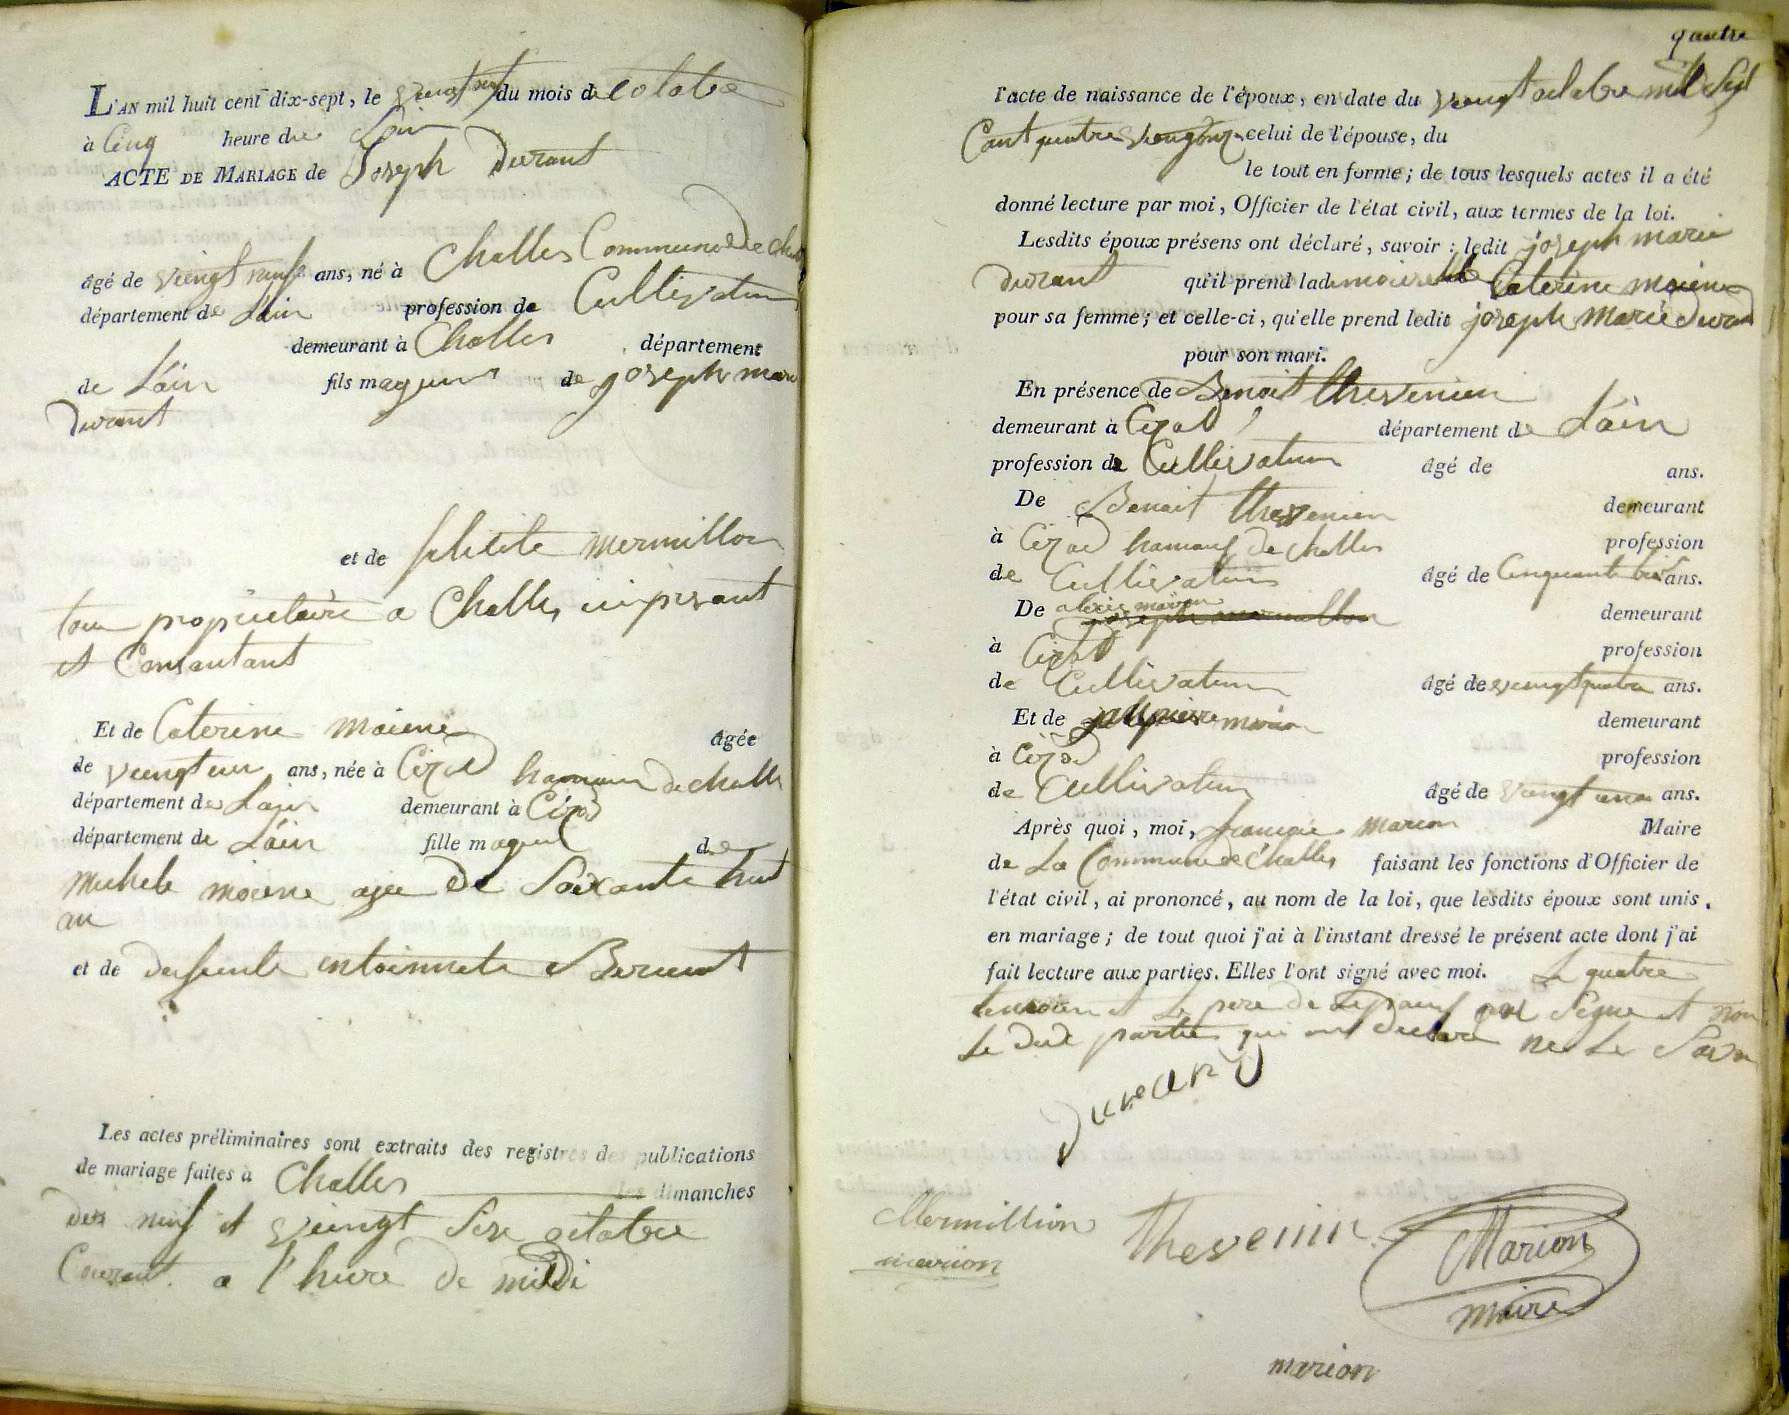 L'AN mil huit cent dix-sept, le vingt sept du mois de octobre
à Cinq heure du Soir
ACTE DE MARIAGE de Joseph Durant
âgé de veingt neuf ans, né à Challes Commune de Challes
département de L'ain profession de Cultivateur
demeurant à Challes département
de L'ain fils mageur de joseph marie
Durant
et de felicite mermillon
tous proprietaire a Challes
et Consantant
Et de Caterine moiene âgée
de veingt un ans, née à Cézod hamau de challe
département de Lain demeurant à Cézod
département de L'ain fille mageur de
michele moiene agee de Soixante huit
an
et de defeunte entoinnete
Les actes préliminaires sont extraits des registres des publications
de mariage faites à Challes les dimanches
des neuf et veingt Sixe octobre
Courant a l'heure de midi
quatre
l'acte de naissance de l'époux, en date du veingt octobre mil Sept
Cant quatre celui de l'épouse, du
le tout en forme; de tous lesquels actes il a été
donné lecture par moi, Officier de l'état civil, aux termes de la loi.
Lesdits époux présens ont déclaré, savoir : ledit joseph marie
Durant qu'il prend lademoiselle Caterine moiene
pour sa femme; et celle-ci, qu'elle prend ledit joseph marie Durand
pour son mari.
En présence de Benoit thevenien
demeurant à Cézod département de L'ain
profession de Cultivateur âgé de ans.
De Benoit thevenien demeurant
à Cézod hamaus de challes profession
de Cultivateur âgé de Cinquante ans.
De alexis moien joseph mermillon demeurant
à Cézod profession
de Cultivateur âgé de veingt quatre ans.
Et de demeurant
à Cézod profession
de Cultivateur âgé de veingt ans.
Après quoi, moi, françois marion Maire
de La Commune de Challes faisant les fonctions d'Officier de
l'état civil, ai prononcé, au nom de la loi, que lesdits époux sont unis
en mariage; de tout quoi j'ai à l'instant dressé le présent acte dont j'ai
fait lecture aux parties. Elles l'ont signé avec moi. Le quatre
temoien et Le pere de Lepouf ont Signe et non
Le dit partie qui ont declare ne Le Savoir
Durand
Mermillion
marion
thevenin
Marion
maire
marion